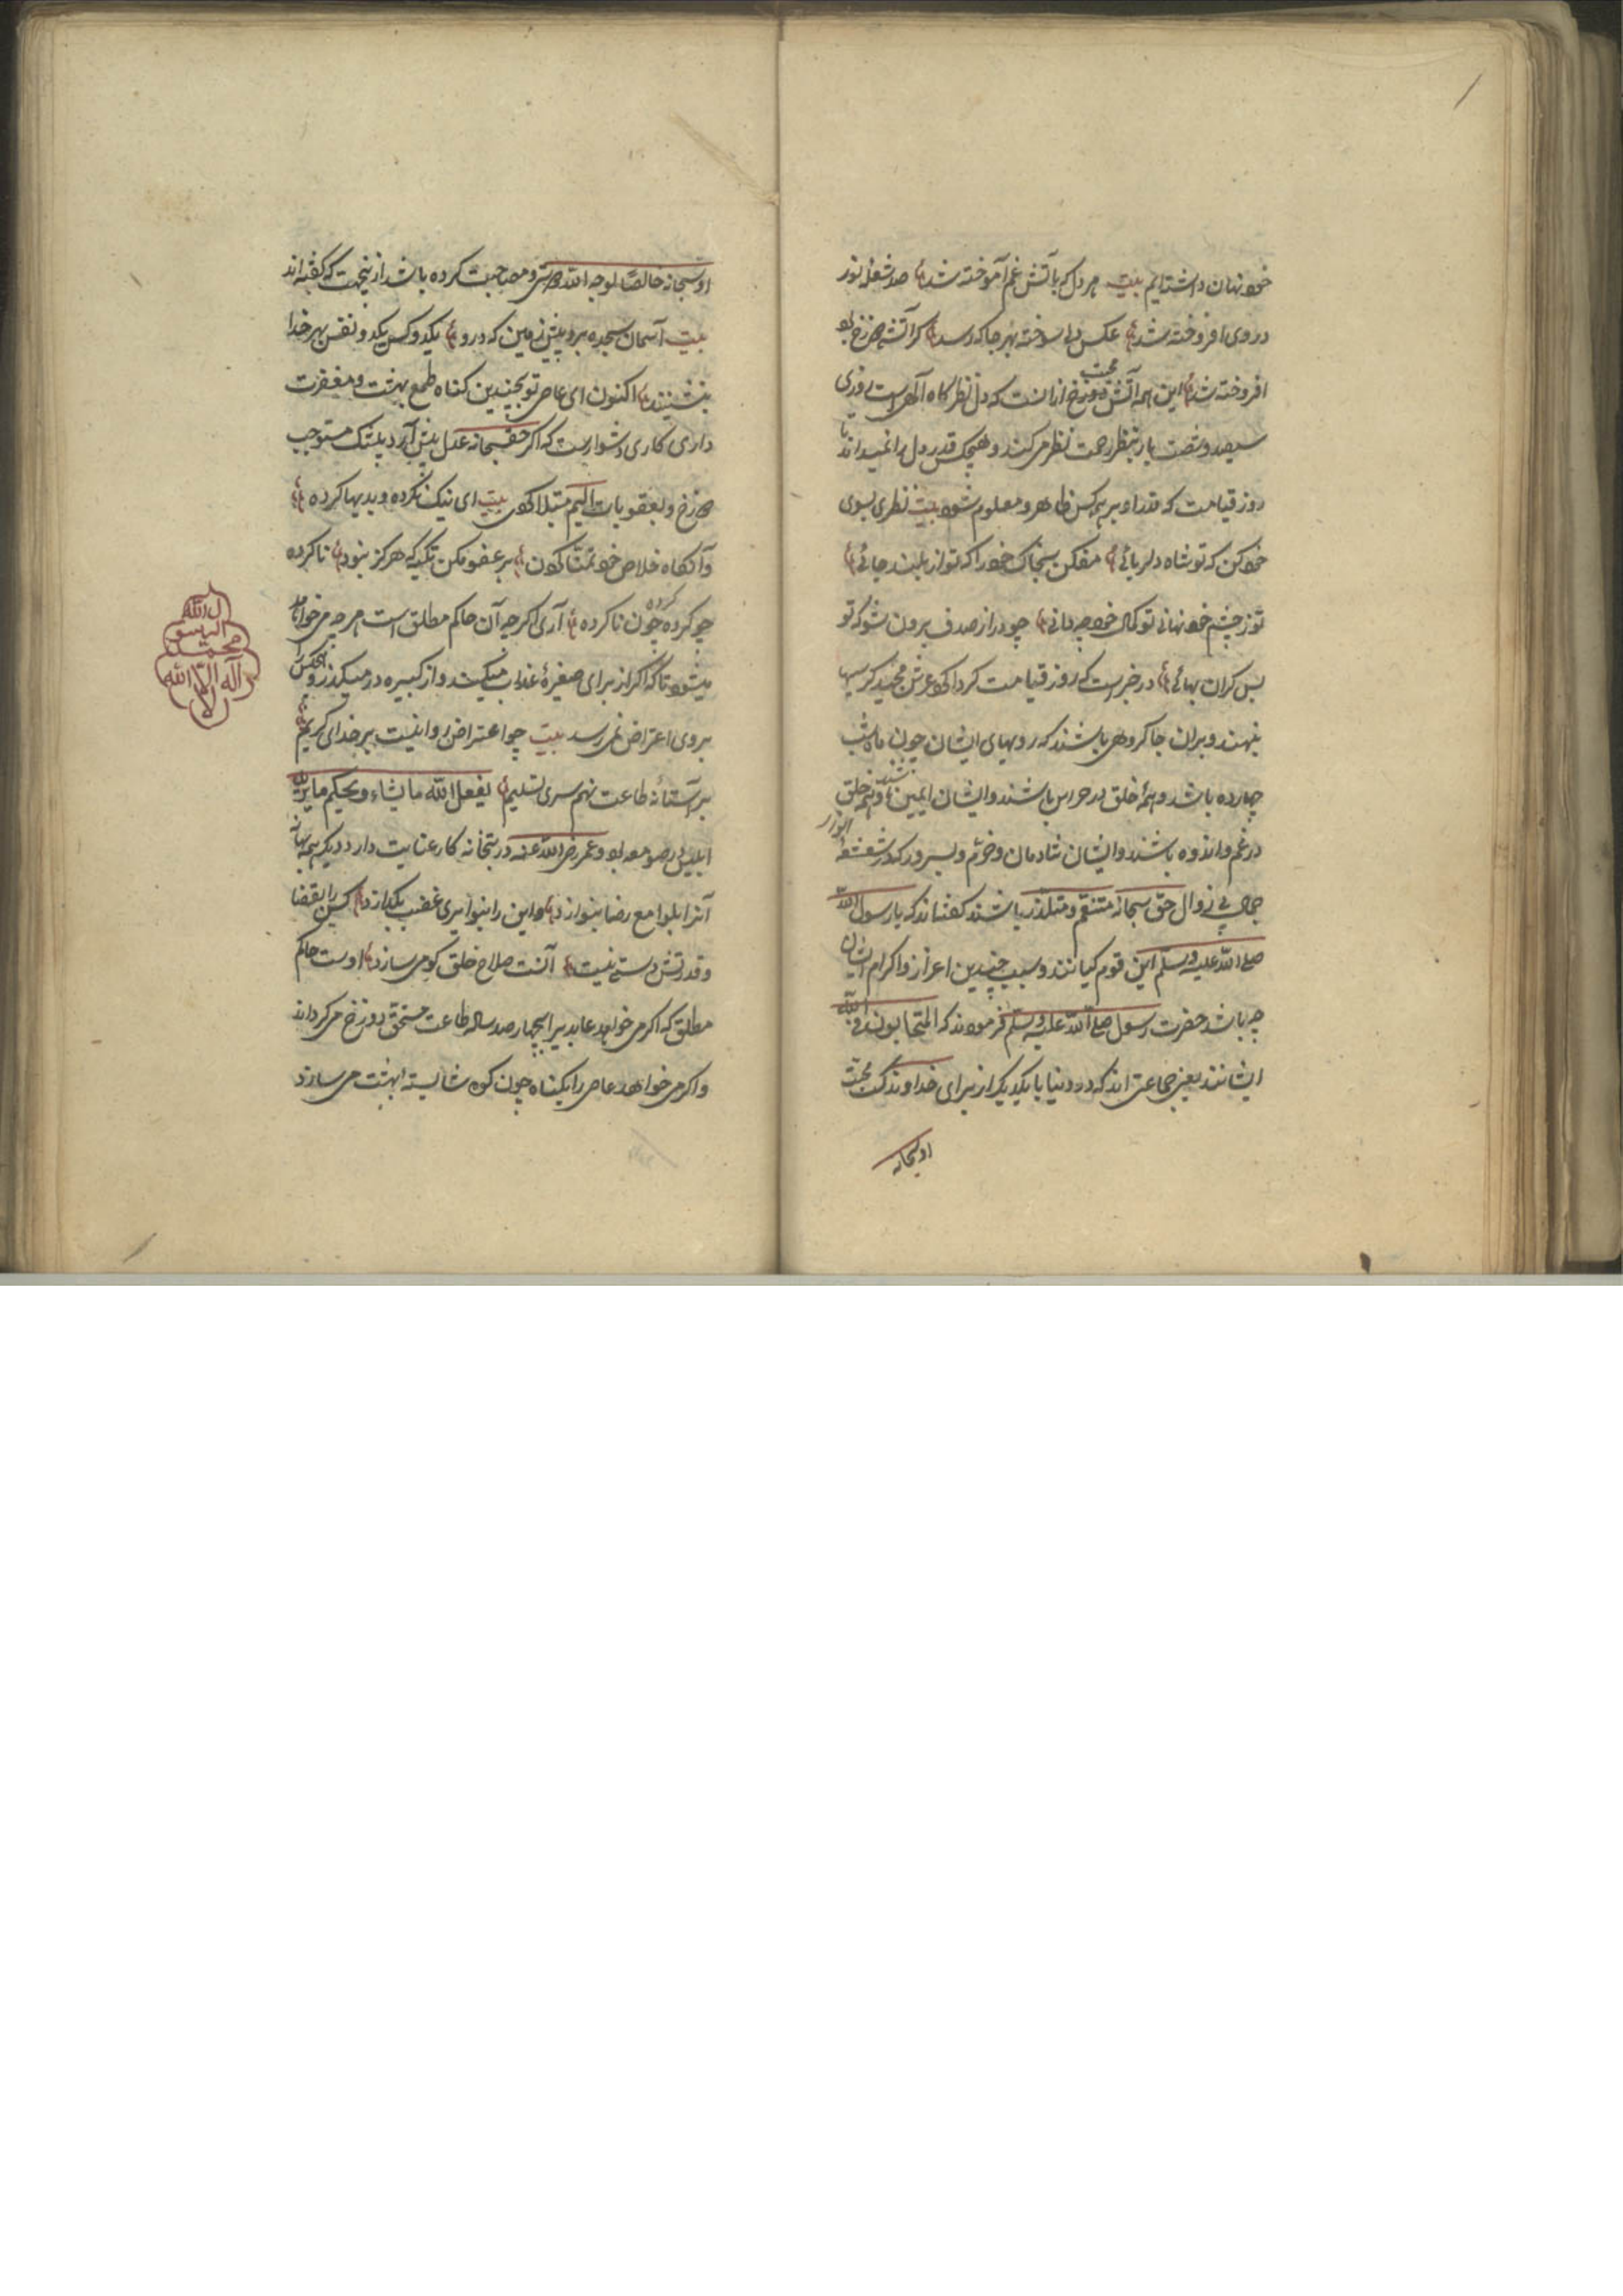 خود نهان داشته‌ایم بیت هر دل که بآتش غم آموخته شد صد شعله نور
در وی افروخته شد عکس دل سوخته بهر جا که رسد کر آتش دوزخ بود
افروخته شد این همه آتش محبت دوزخ ازانست که دل نظرگاه الهی است روزی
سیصد و شصت بار بنظر رحمت نظر می‌کند و هیچکس قدر دل را نمیداند تا
روز قیامت که قدر او بر همه کس ظاهر و معلوم شود بیت نظری بسوی
خود کن که تو شاه دلربائی مفکن بخاک خود را که تو از بلند جائی
تو ز چشم خود نهانی تو کمال خود چه دانی چو در از صدف برون شو که تو
بس کران بهائی در خبر است که روز قیامت کرداکرد عرش مجید کرسیها
بنهند و بران جا کروهی باشند که رویهای ایشان چون ماه شب
چهارده باشد و همه خلق در هراس باشند و ایشان ایمن باشند و همه خلق
در غم و اندوه باشند و ایشان شادمان و خرم و بسرور که در شعشعه انوار
جمال بی زوال حق سبحانه متنعم و متلذذ باشند کفته‌اند که یا رسول الله
صلی الله علیه وسلم این قوم کیانند و سبب چندین اعزاز و اکرام ایشان
چه باشد حضرت رسول صلی الله علیه وسلم فرمودند که المتحابون فی الله
ایشانند یعنی جماعتی اند که در دنیا با یکدیکر از برای خداوند محبت
او سبحانه
او سبحانه خالصا لوجه الله دوستی و مصاحبت کرده باشد ازینجهت که کفته‌اند
بیت آسمان سجده برد پیش زمین که درو یکدو کس یکدو نفس بهر خدا
بنشینند اکنون ای عاصی تو بچندین کناه طمع بهشت و مغفرت
داری کاری دشوارست که اکر حق سبحانه عدل پیش آرد بیشک مستوجب
دوزخ و بعقوبات الیم مبتلا کردی بیت ای نیک نکرده و بدیها کرده
وآنکاه خلاص خود تمنا کرده بر عفو مکن تکیه که هرکز نبود ناکرده
چو کرده کرده چون ناکرده آری اکرچه آن حاکم مطلق است هر چه می‌خواهد
میشود تا که اکر از برای صغیره عذاب میکند و از کبیره در میکذرد و هیچکس را
بر وی اعتراض نمی رسد بیت چو اعتراض روا نیست بر خدای کریم
بر آستانه طاعت نهم سری تسلیم یفعل الله ما یشاء و یحکم ما یرید
ابلیس در صومعه بود و عمر رضی الله عنه در بتخانه کار عنایت دارد دیکر همه بهانه
آنرا بلوامع رضا بنوازد واین را بنوایر غضب بکدازد کس را بقضا
و قدرتش دستی نیست آنست صلاح خلق کو می‌سازد اوست حاکم
مطلق که اکر می خواهد عابدیرا بچهار صد ساله طاعت مستحق دوزخ می‌کرداند
واکر می خواهد عاصی را بکناه چون کوه شایسته بهشت می سازد
لا اله الا الله
محمد
الرسو
ل الله